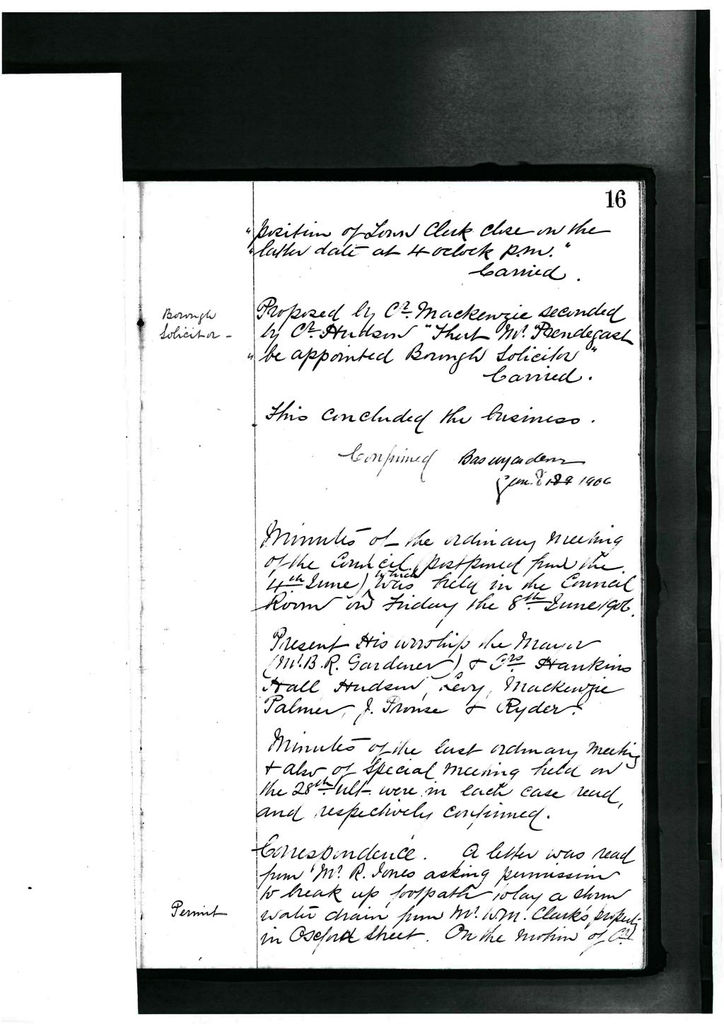 16
"position of Town Clerk close on the
"latter date at 4 oclock p.m."
Carried.
Borough
Solicitor -
Proposed by Cr. Mackenzie seconded
by Cr. Hudson "That Mr. Prendegast
"be appointed Borough Solicitor"
Carried.
This concluded the business.
Confirmed
1906
Minutes of the ordinary meeting
of the Council (postponed from the
4th June) which was held in the Council
Room on Friday the 8th June 1906.
Present His worship the Mayor
(Mr. B. R. Gardener) & Crs Hankins
Hall, Hudson, Levy, Mackenzie
Palmer, J. Prouse & Ryder.
Minutes of the last ordinary meeting
& also of Special meeting held on
the 28th ult were in each case read,
and respectively confirmed.
Correspondence. A letter was read
from Mr. R. Jones asking permission
to break up footpath to lay a storm
Permit
water drain from Mr. Wm. Clark's property
in Oxford Street. On the motion of Cr.